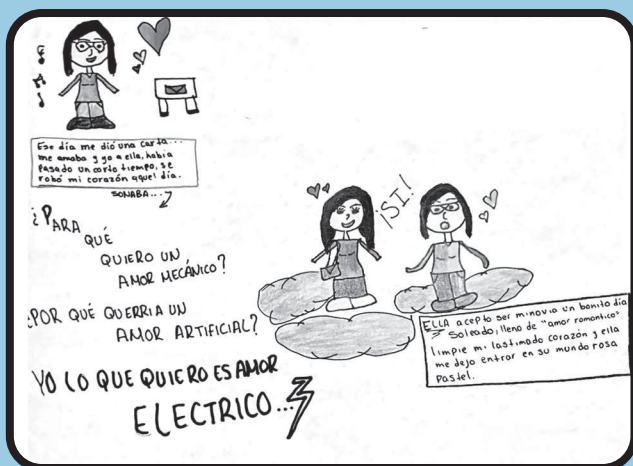 Ese día me dió una carta...
me amaba y yo a ella, había
pasado un corto tiempo, se
robó mi corazón aquel día.
SONABA...
¿PARA
QUÉ
QUIERO UN
AMOR MECÁNICO?
¿POR QUÉ QUERRIA UN
AMOR ARTIFICIAL?
YO LO QUE QUIERO ES AMOR
ELECTRICO...
¡SI!
ELLA acepto ser mi novia un bonito día
soleado, lleno de "amor romantico"
limpie mi lastimado corazón y ella
me dejo entrar en su mundo rosa
pastel.